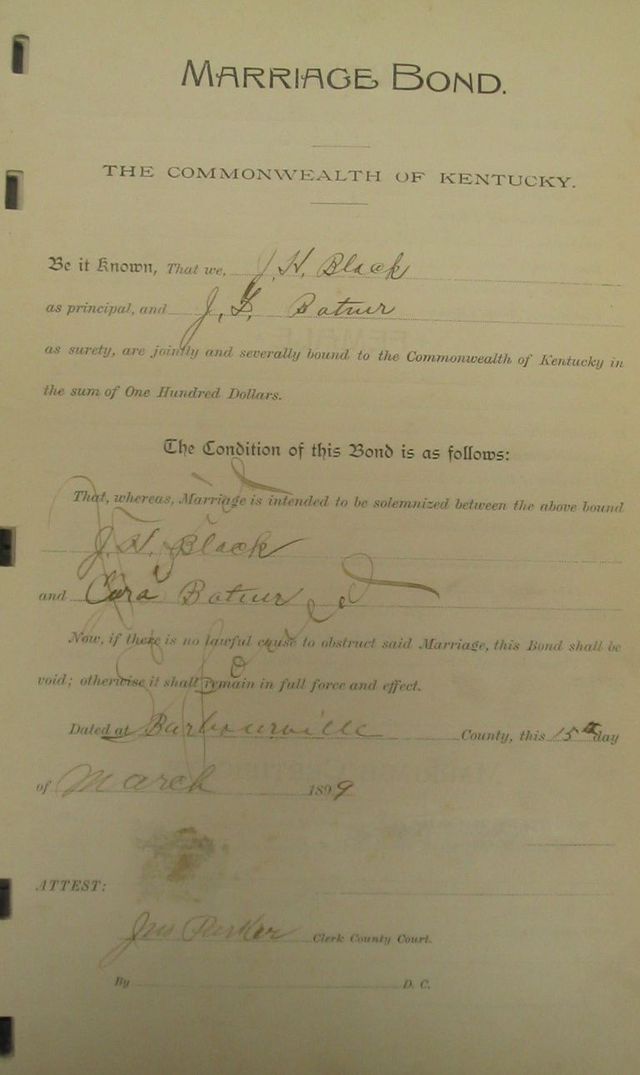 MARRIAGE BOND.
THE COMMONWEALTH OF KENTUCKY.
Be it Known, That we, J. H. Black
as principal, and J. F. Botner
as surety, are jointly and severally bound to the Commonwealth of Kentucky in
the sum of One Hundred Dollars.
The Condition of this Bond is as follows:
That, whereas, Marriage is intended to be solemnized between the above bound
J. H. Black
and Cora Botner
Now, if there is no lawful cause to obstruct said Marriage, this Bond shall be
void; otherwise it shall remain in full force and effect.
Dated at Barbourville County, this 15th day
of March 1899
ATTEST:
Clerk County Court.
By D. C.